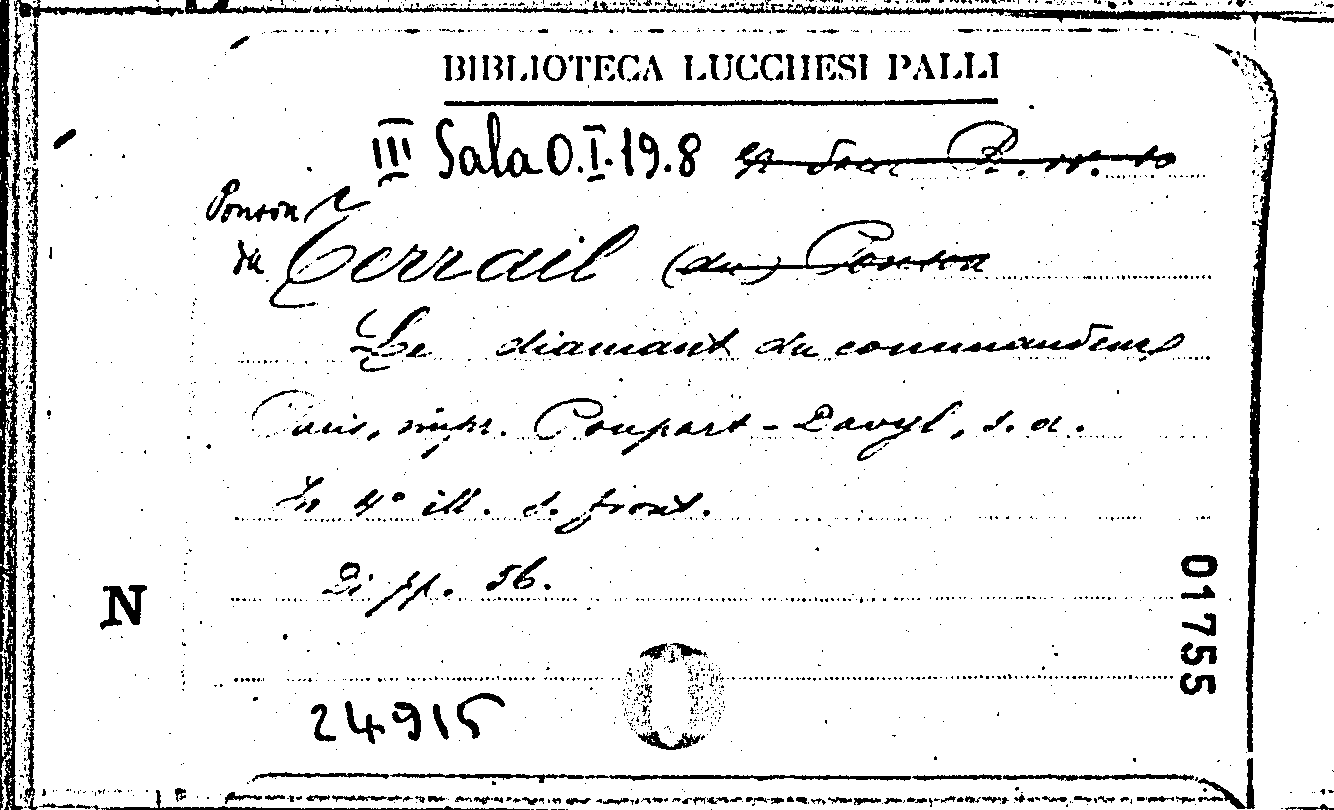 BIBLIOTECA LUCCHESI PALLI
III Sala O.I.19.8
Ponson
du Terrail (du) Ponson
Le diamant du commandeur
Paris, impr. Poupart-Davyl, s. a.
In 4° ill. s. front.
Di pp. 56.
N
01755
24915